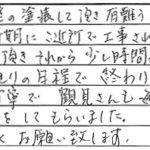 の塗装して頂き有難う
期にご近所で工事され
頂き それから 少し時間
りの日程で 終わり
寧で 観見さんも
をして もらいました。
くお願い致します。